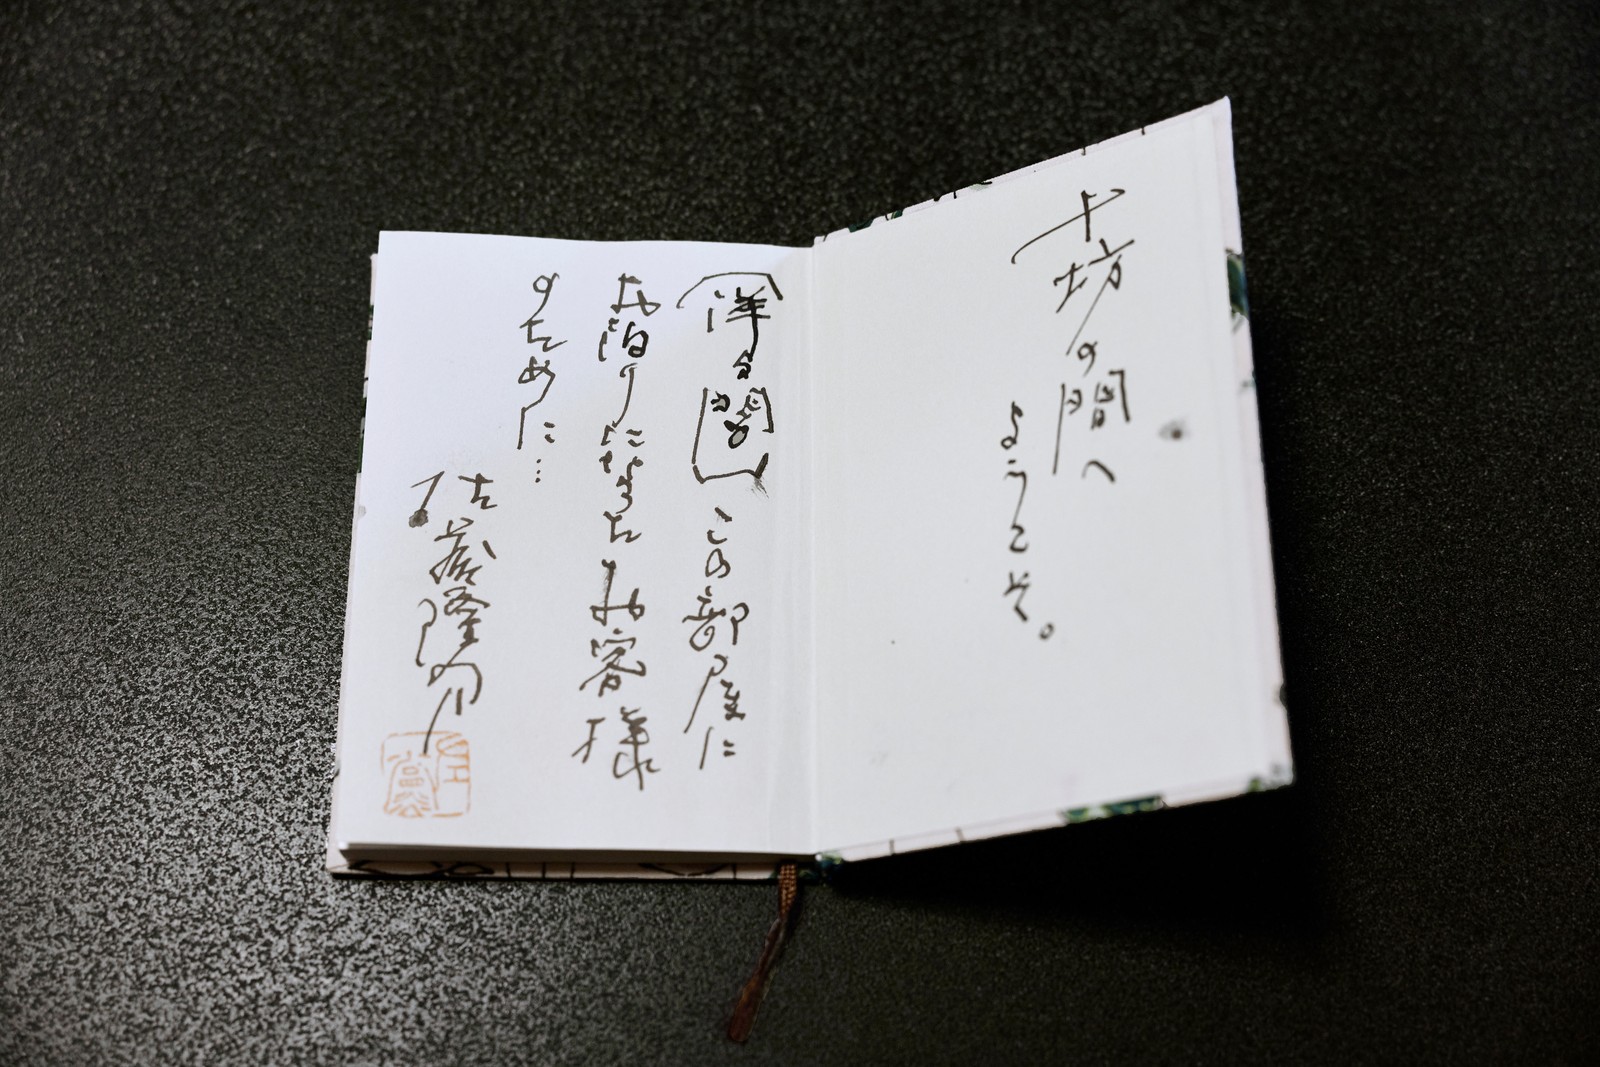 十坊の間へ
ようこそ。
〔洋々閣〕この部屋に
お泊りになったお客様
のために…
佐藤隆介